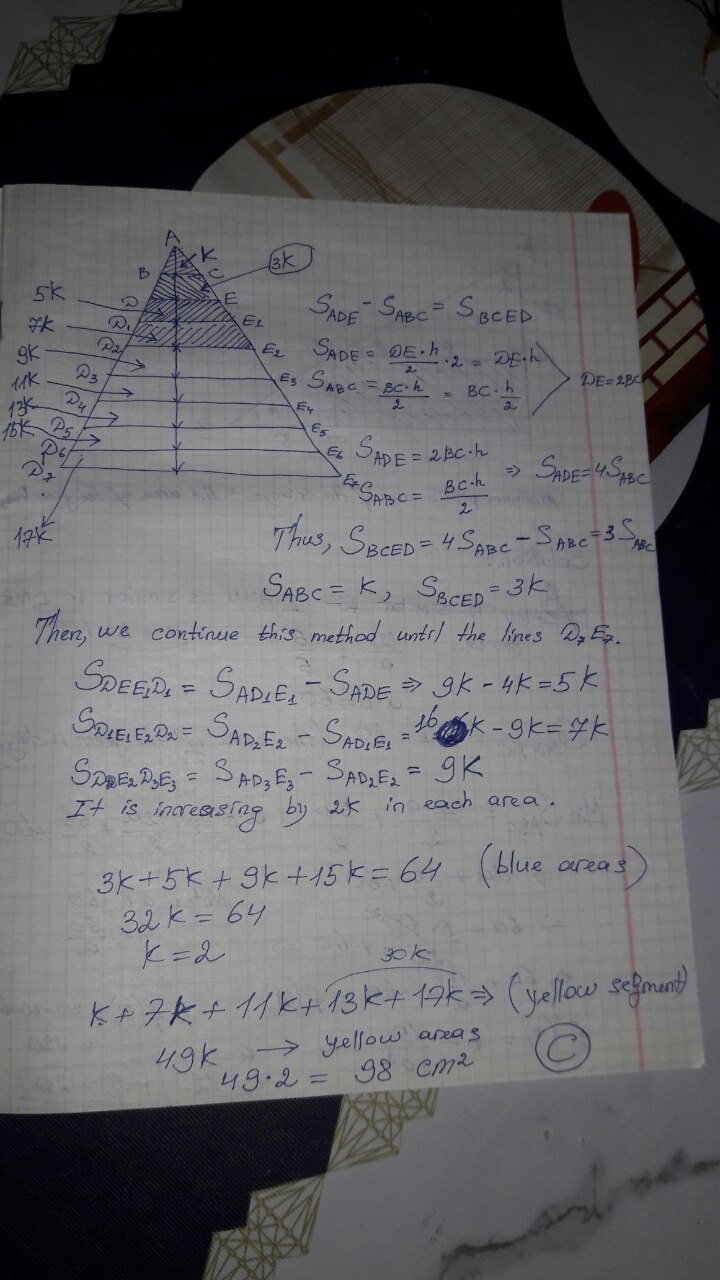 A
K
3K
B C
5K
D E
7K
D₁ E₁
D₂ E₂
9K
D₃ E₃
11K
D₄ E₄
13K
D₅ E₅
15K
D₆ E₆
D₇ E₇
17K
S_ADE - S_ABC = S_BCED
S_ADE = DE·h/2 · 2 = DE·h
S_ABC = BC·h/2 = BC·h/2
DE=2BC
S_ADE = 2BC·h
S_ABC = BC·h/2 ⇒ S_ADE=4S_ABC
Thus, S_BCED = 4S_ABC - S_ABC = 3S_ABC
S_ABC = K, S_BCED = 3K
Then, we continue this method until the lines D₇E₇.
S_DEE₁D₁ = S_AD₁E₁ - S_ADE ⇒ 9K - 4K = 5K
S_D₁E₁E₂D₂ = S_AD₂E₂ - S_AD₁E₁ = 16K - 9K = 7K
S_D₂E₂D₃E₃ = S_AD₃E₃ - S_AD₂E₂ = 9K
It is increasing by 2K in each area.
3K+5K+9K+15K=64 (blue areas)
32K = 64
K=2
30K
K+7K+11K+13K+17K⇒ (yellow segment)
49K → yellow areas
49·2 = 98 cm²
C